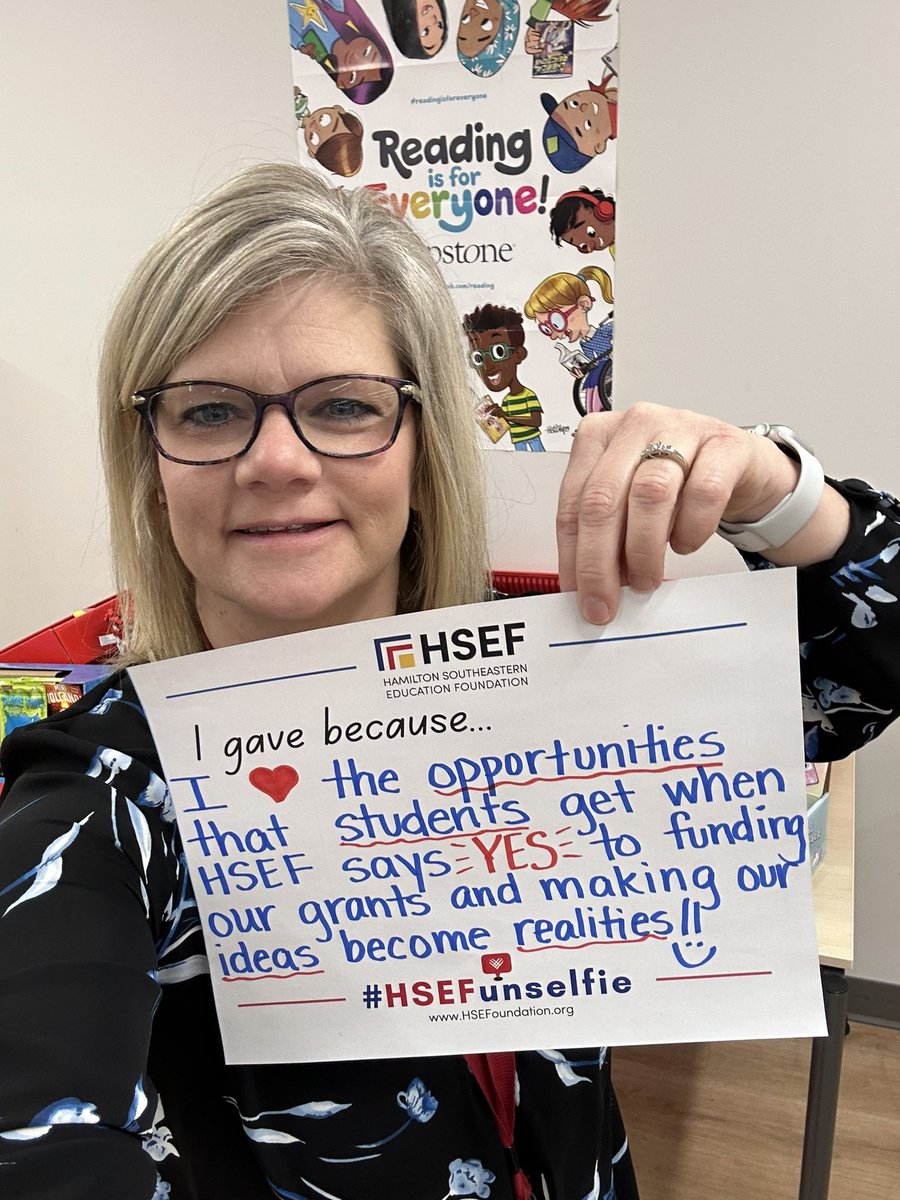 #readingisforeveryone
Reading
is for
Everyone!
HSEF
HAMILTON SOUTHEASTERN
EDUCATION FOUNDATION
I gave because...
I ❤ the opportunities
that students get when
HSEF says YES to funding
our grants and making our
ideas become realities!!
#HSEFunselfie
www.HSEFoundation.org